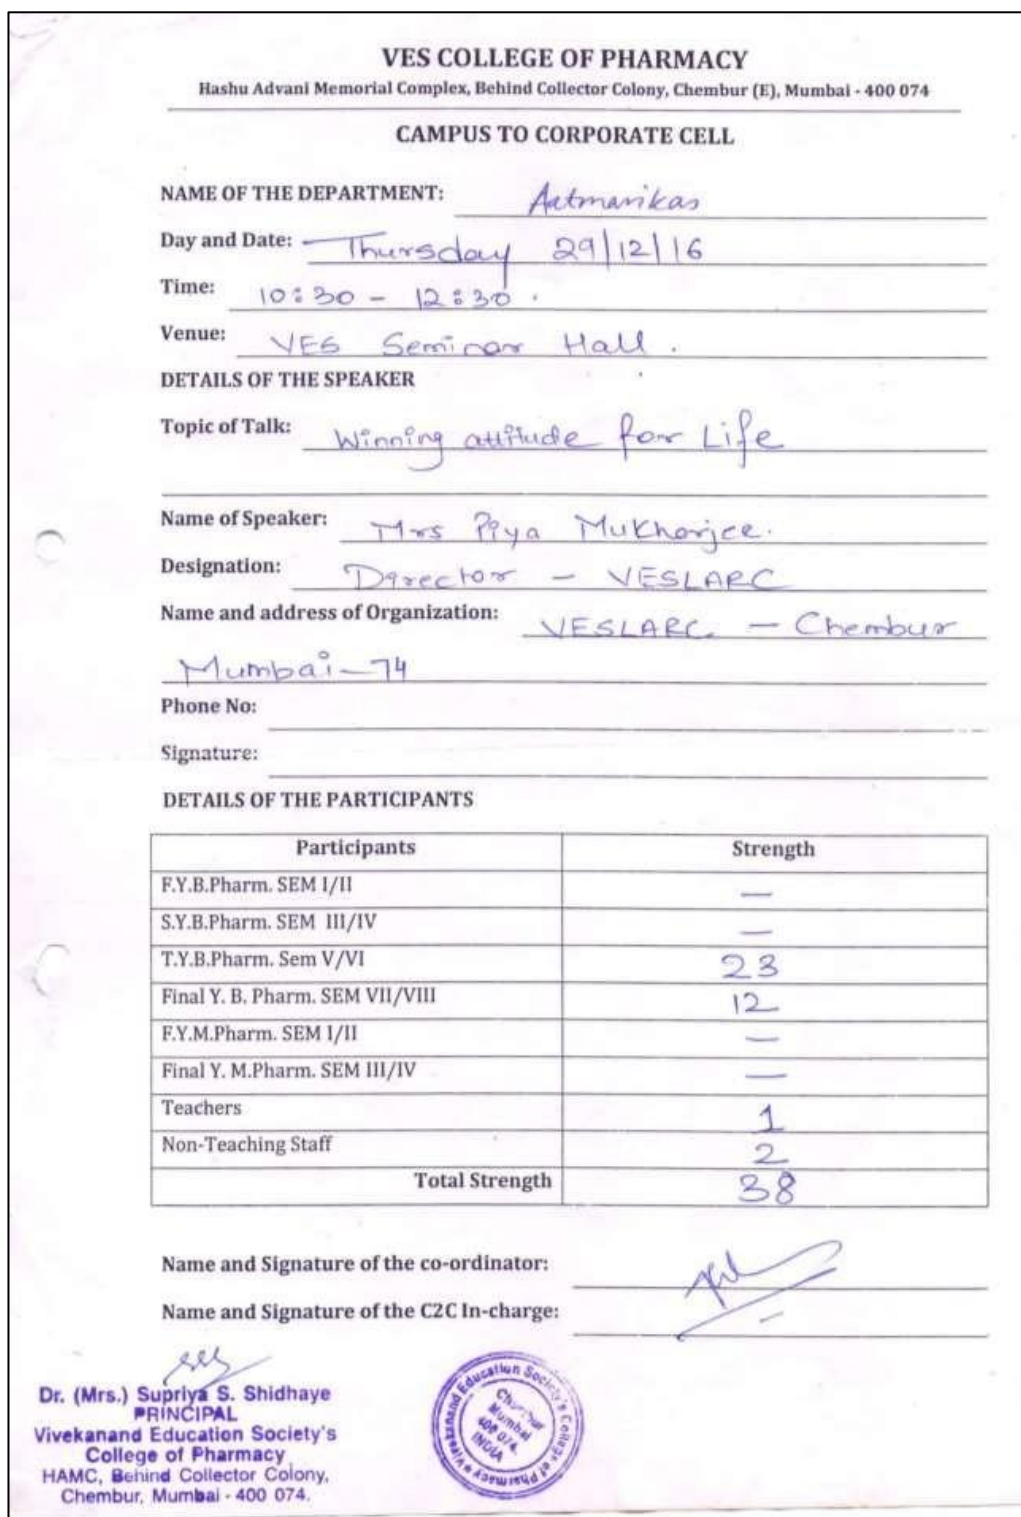 VES COLLEGE OF PHARMACY
Hashu Advani Memorial Complex, Behind Collector Colony, Chembur (E), Mumbai - 400 074
CAMPUS TO CORPORATE CELL
NAME OF THE DEPARTMENT: Aatmavikas
Day and Date: Thursday 29/12/16
Time: 10:30 - 12:30.
Venue: VES Seminar Hall.
DETAILS OF THE SPEAKER
Topic of Talk: Winning attitude for Life
Name of Speaker: Mrs Piya Mukherjee.
Designation: Director - VESLARC
Name and address of Organization: VESLARC - Chembur
Mumbai-74
Phone No:
Signature:
DETAILS OF THE PARTICIPANTS
Participants Strength
F.Y.B.Pharm. SEM I/II —
S.Y.B.Pharm. SEM III/IV —
T.Y.B.Pharm. Sem V/VI 23
Final Y. B. Pharm. SEM VII/VIII 12
F.Y.M.Pharm. SEM I/II —
Final Y. M.Pharm. SEM III/IV —
Teachers 1
Non-Teaching Staff 2
Total Strength 38
Name and Signature of the co-ordinator:
Name and Signature of the C2C In-charge:
Dr. (Mrs.) Supriya S. Shidhaye
PRINCIPAL
Vivekanand Education Society's
College of Pharmacy
HAMC, Behind Collector Colony,
Chembur, Mumbai - 400 074.
Vivekanand Education Society's College of Pharmacy
Chembur
Mumbai
400 074.
INDIA